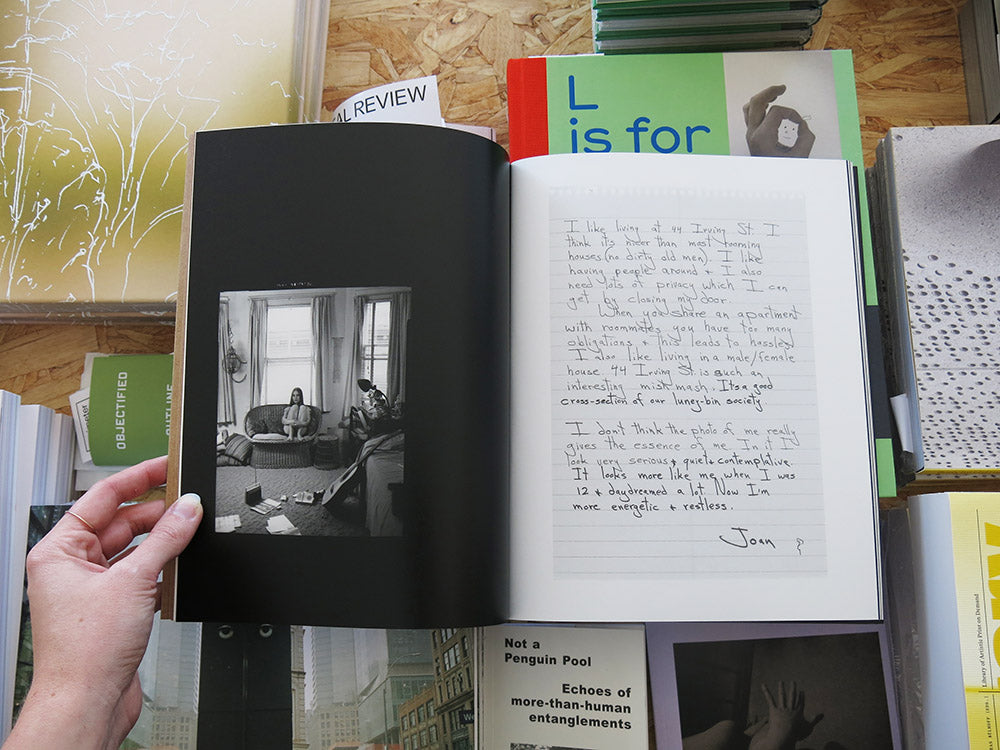 AL REVIEW
L
is for
I like living at 44 Irving St. I
think it's nicer than most rooming
houses (no dirty old men). I like
having people around + I also
need lots of privacy which I can
get by closing my door.
When you share an apartment
with roommates you have too many
obligations + this leads to hassles.
I also like living in a male/female
house. 44 Irving St. is such an
interesting mish mash. Its a good
cross-section of our luney-bin society
I don't think the photo of me really
gives the essence of me. In it I
look very serious + quiet + contemplative.
It looks more like me when I was
12 + daydreamed a lot. Now I'm
more energetic + restless.
Joan
OBJECTIFIED
OUTLINE
Not a
Penguin Pool
Echoes of
more-than-human
entanglements
Library of Artistic Print on Demand